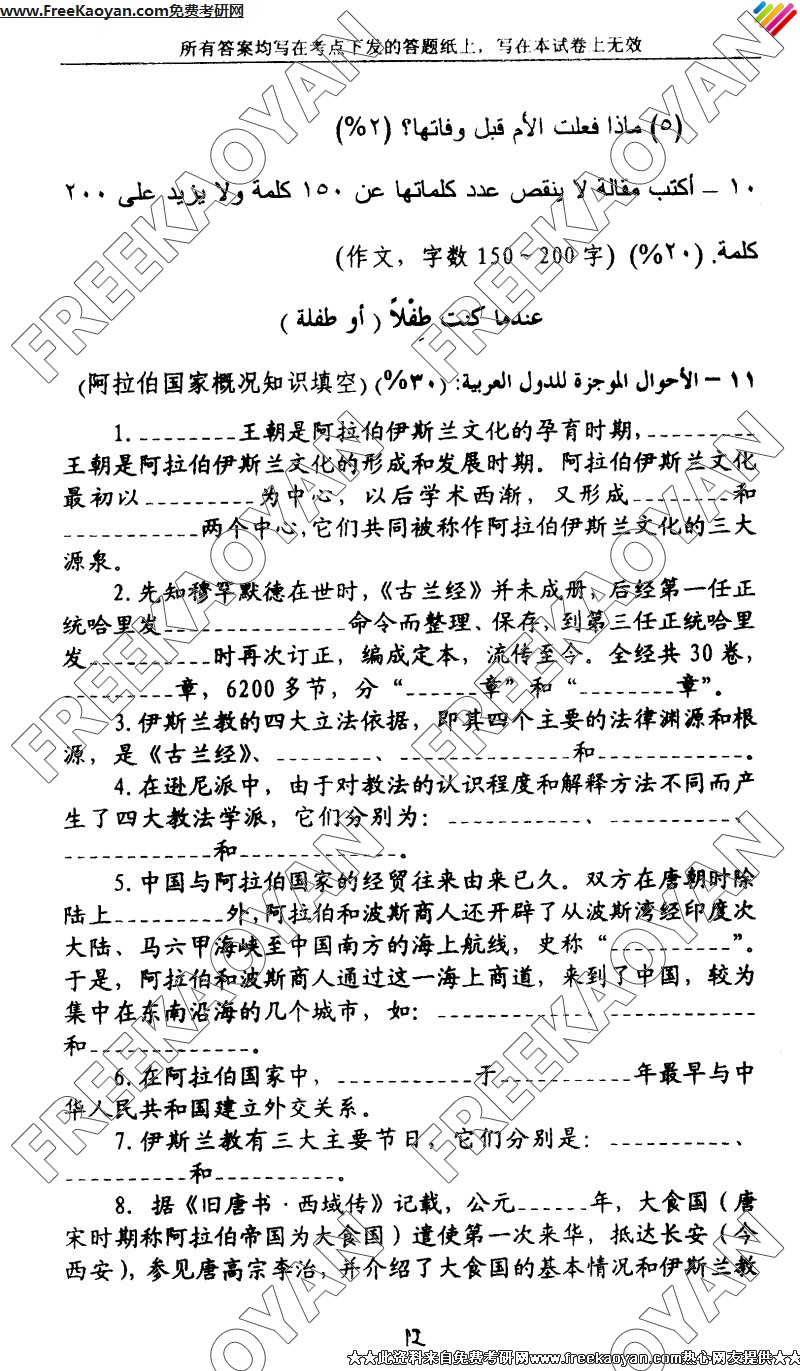 www.FreeKaoyan.com免费考研网
所有答案均写在考点下发的答题纸上，写在本试卷上无效
(٥) ماذا فعلت الأم قبل وفاتها؟ (٢%)
١٠ – أكتب مقالة لا ينقص عدد كلماتها عن ١٥٠ كلمة ولا يزيد على ٢٠٠
كلمة. (٢٠%) (作文，字数 150～200 字)
عندما كنت طِفْلاً ( أو طفلة )
١١ – الأحوال الموجزة للدول العربية: (٣٠%) (阿拉伯国家概况知识填空)
1. _________王朝是阿拉伯伊斯兰文化的孕育时期，_________
王朝是阿拉伯伊斯兰文化的形成和发展时期。阿拉伯伊斯兰文化
最初以_________为中心，以后学术西渐，又形成_________和
____________两个中心，它们共同被称作阿拉伯伊斯兰文化的三大
源泉。
2. 先知穆罕默德在世时，《古兰经》并未成册，后经第一任正
统哈里发________________命令而整理、保存，到第三任正统哈里
发___________时再次订正，编成定本，流传至今。全经共 30 卷，
_________章，6200 多节，分“______章”和“________章”。
3. 伊斯兰教的四大立法依据，即其四个主要的法律渊源和根
源，是《古兰经》、_________、______________和_____________。
4. 在逊尼派中，由于对教法的认识程度和解释方法不同而产
生了四大教法学派，它们分别为：____________、____________、
_____________和______________。
5. 中国与阿拉伯国家的经贸往来由来已久。双方在唐朝时除
陆上__________外，阿拉伯和波斯商人还开辟了从波斯湾经印度次
大陆、马六甲海峡至中国南方的海上航线，史称“___________”。
于是，阿拉伯和波斯商人通过这一海上商道，来到了中国，较为
集中在东南沿海的几个城市，如：_____________、_____________
和______________。
6. 在阿拉伯国家中，____________于____________年最早与中
华人民共和国建立外交关系。
7. 伊斯兰教有三大主要节日，它们分别是：___________、
___________和___________。
8. 据《旧唐书·西域传》记载，公元______年，大食国（唐
宋时期称阿拉伯帝国为大食国）遣使第一次来华，抵达长安（今
西安），参见唐高宗李治，并介绍了大食国的基本情况和伊斯兰教
12
★★此资料来自免费考研网www.freekaoyan.com热心网友提供★★
FREEKAOYAN
FREEKAOYAN
FREEKAOYAN
FREEKAOYAN
FREEKAOYAN
FREEKAOYAN
FREEKAOYAN
FREEKAOYAN